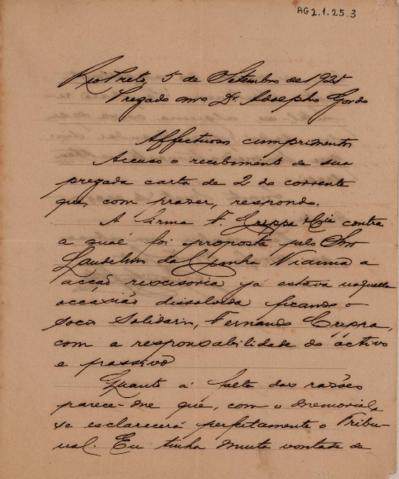 AG 2.1.25.3
Rio Preto, 5 de Setembro de 1925
Prezado amo Dr. Adolpho Gordo
Affectuosos cumprimentos
Accuso o recebimento de sua
prezada carta de 2 do corrente
que, com prazer, respondo.
A firma F. Crespa & Cia contra
a qual foi proposta pelo Snr
Laudelino da Cunha Vianna a
acção rescisoria já estava naquella
occasião dissolvida ficando o
socio solidario, Fernando Crespa,
com a responsabilidade do activo
e passivo
Quanto á falta das razões
parece-me que, com o memorial,
se esclarecerá perfeitamente o Tribu-
nal. Eu tinha muita vontade de